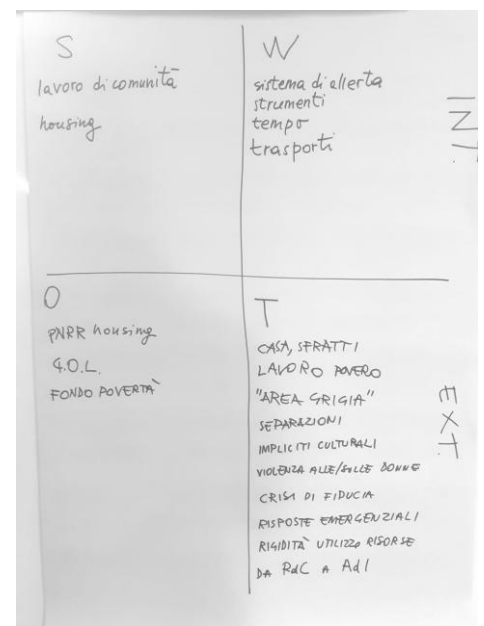 S
lavoro di comunità
housing
W
sistema di allerta
strumenti
tempo
trasporti
INT.
O
PNRR housing
G.O.L.
FONDO POVERTÀ
T
CASA, SFRATTI
LAVORO POVERO
"AREA GRIGIA"
SEPARAZIONI
IMPLICITI CULTURALI
VIOLENZA ALLE/SULLE DONNE
CRISI DI FIDUCIA
RISPOSTE EMERGENZIALI
RIGIDITÀ UTILIZZO RISORSE
DA RdC A AdI
EXT.